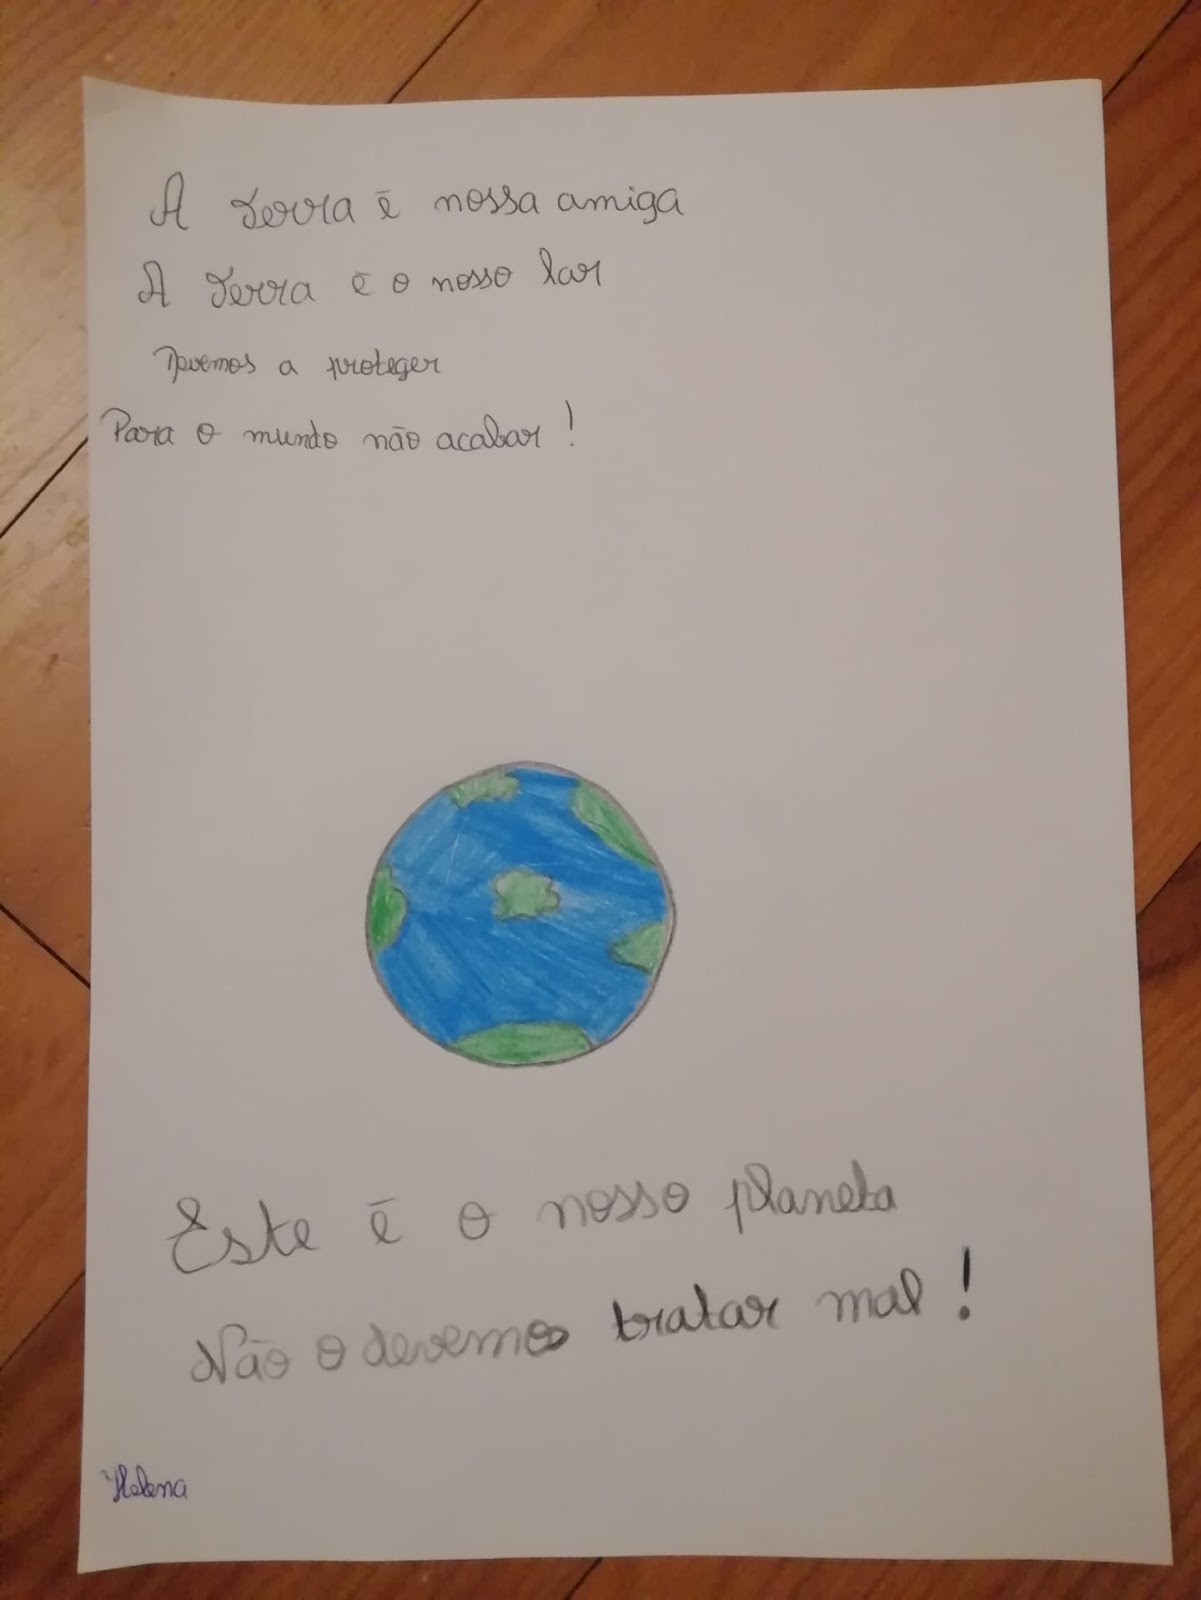 A Terra é nossa amiga
A Terra é o nosso lar
Devemos a proteger
Para o mundo não acabar!
Este é o nosso planeta
Não o devemos tratar mal!
Helena